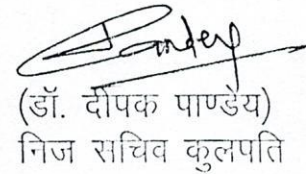 Pandey
(डॉ. दीपक पाण्डेय)
निज सचिव कुलपति